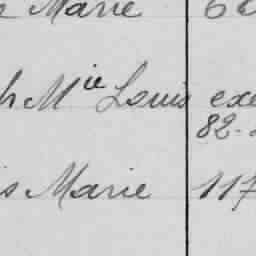 Marie 6
h Mie Louis exe
82-
is Marie 117